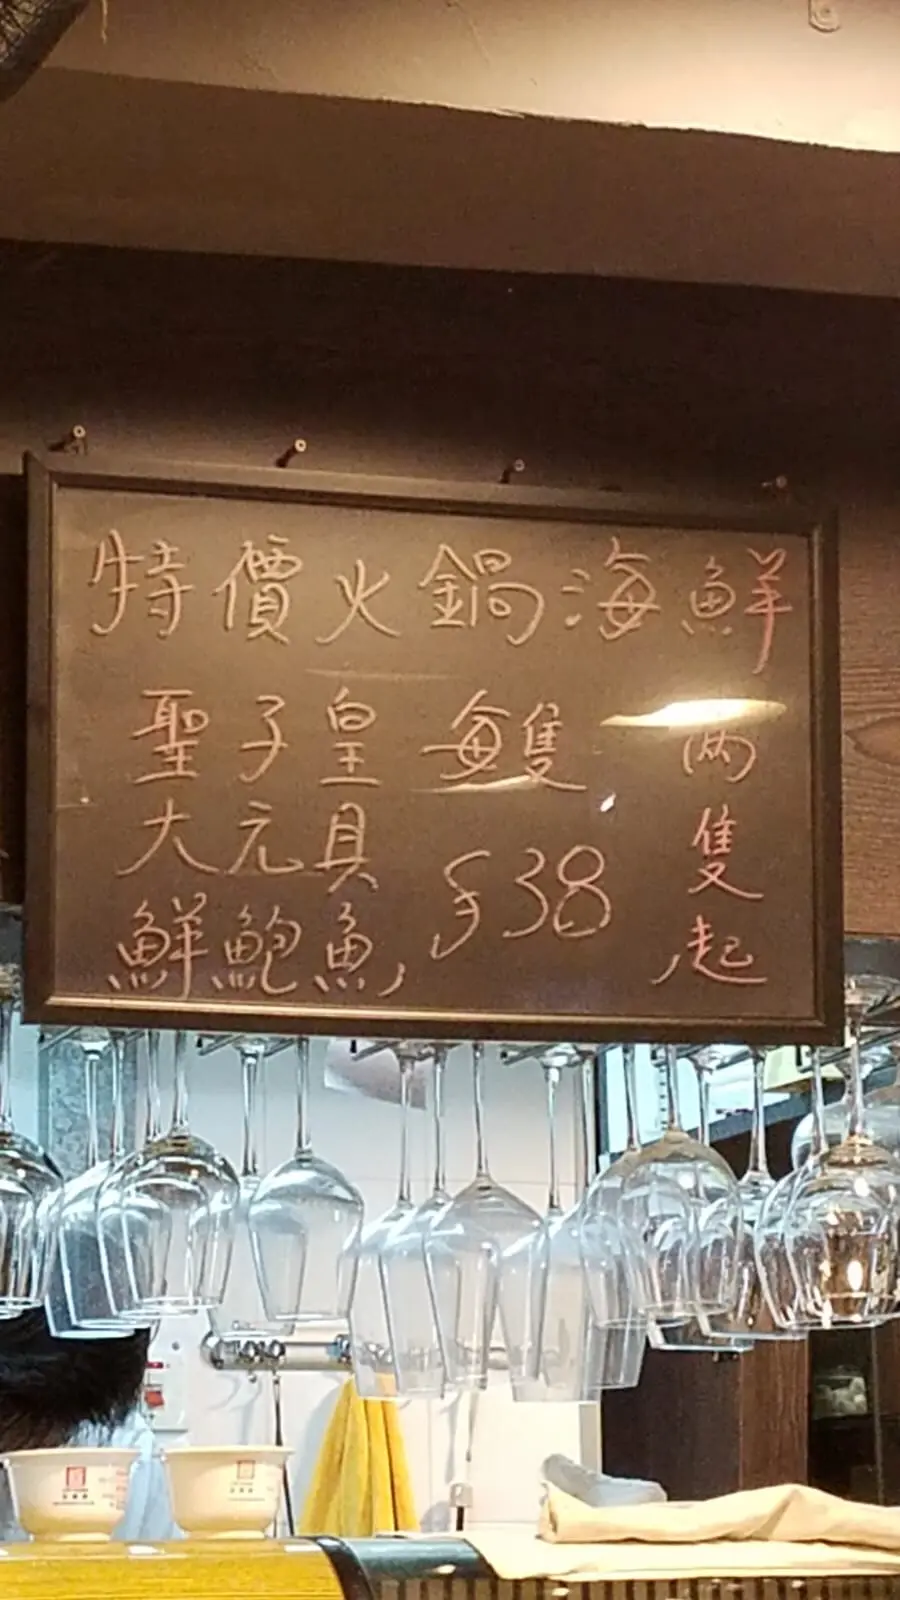 特價火鍋海鮮
聖子皇
大元貝
鮮鮑魚
每隻
$38
両隻起